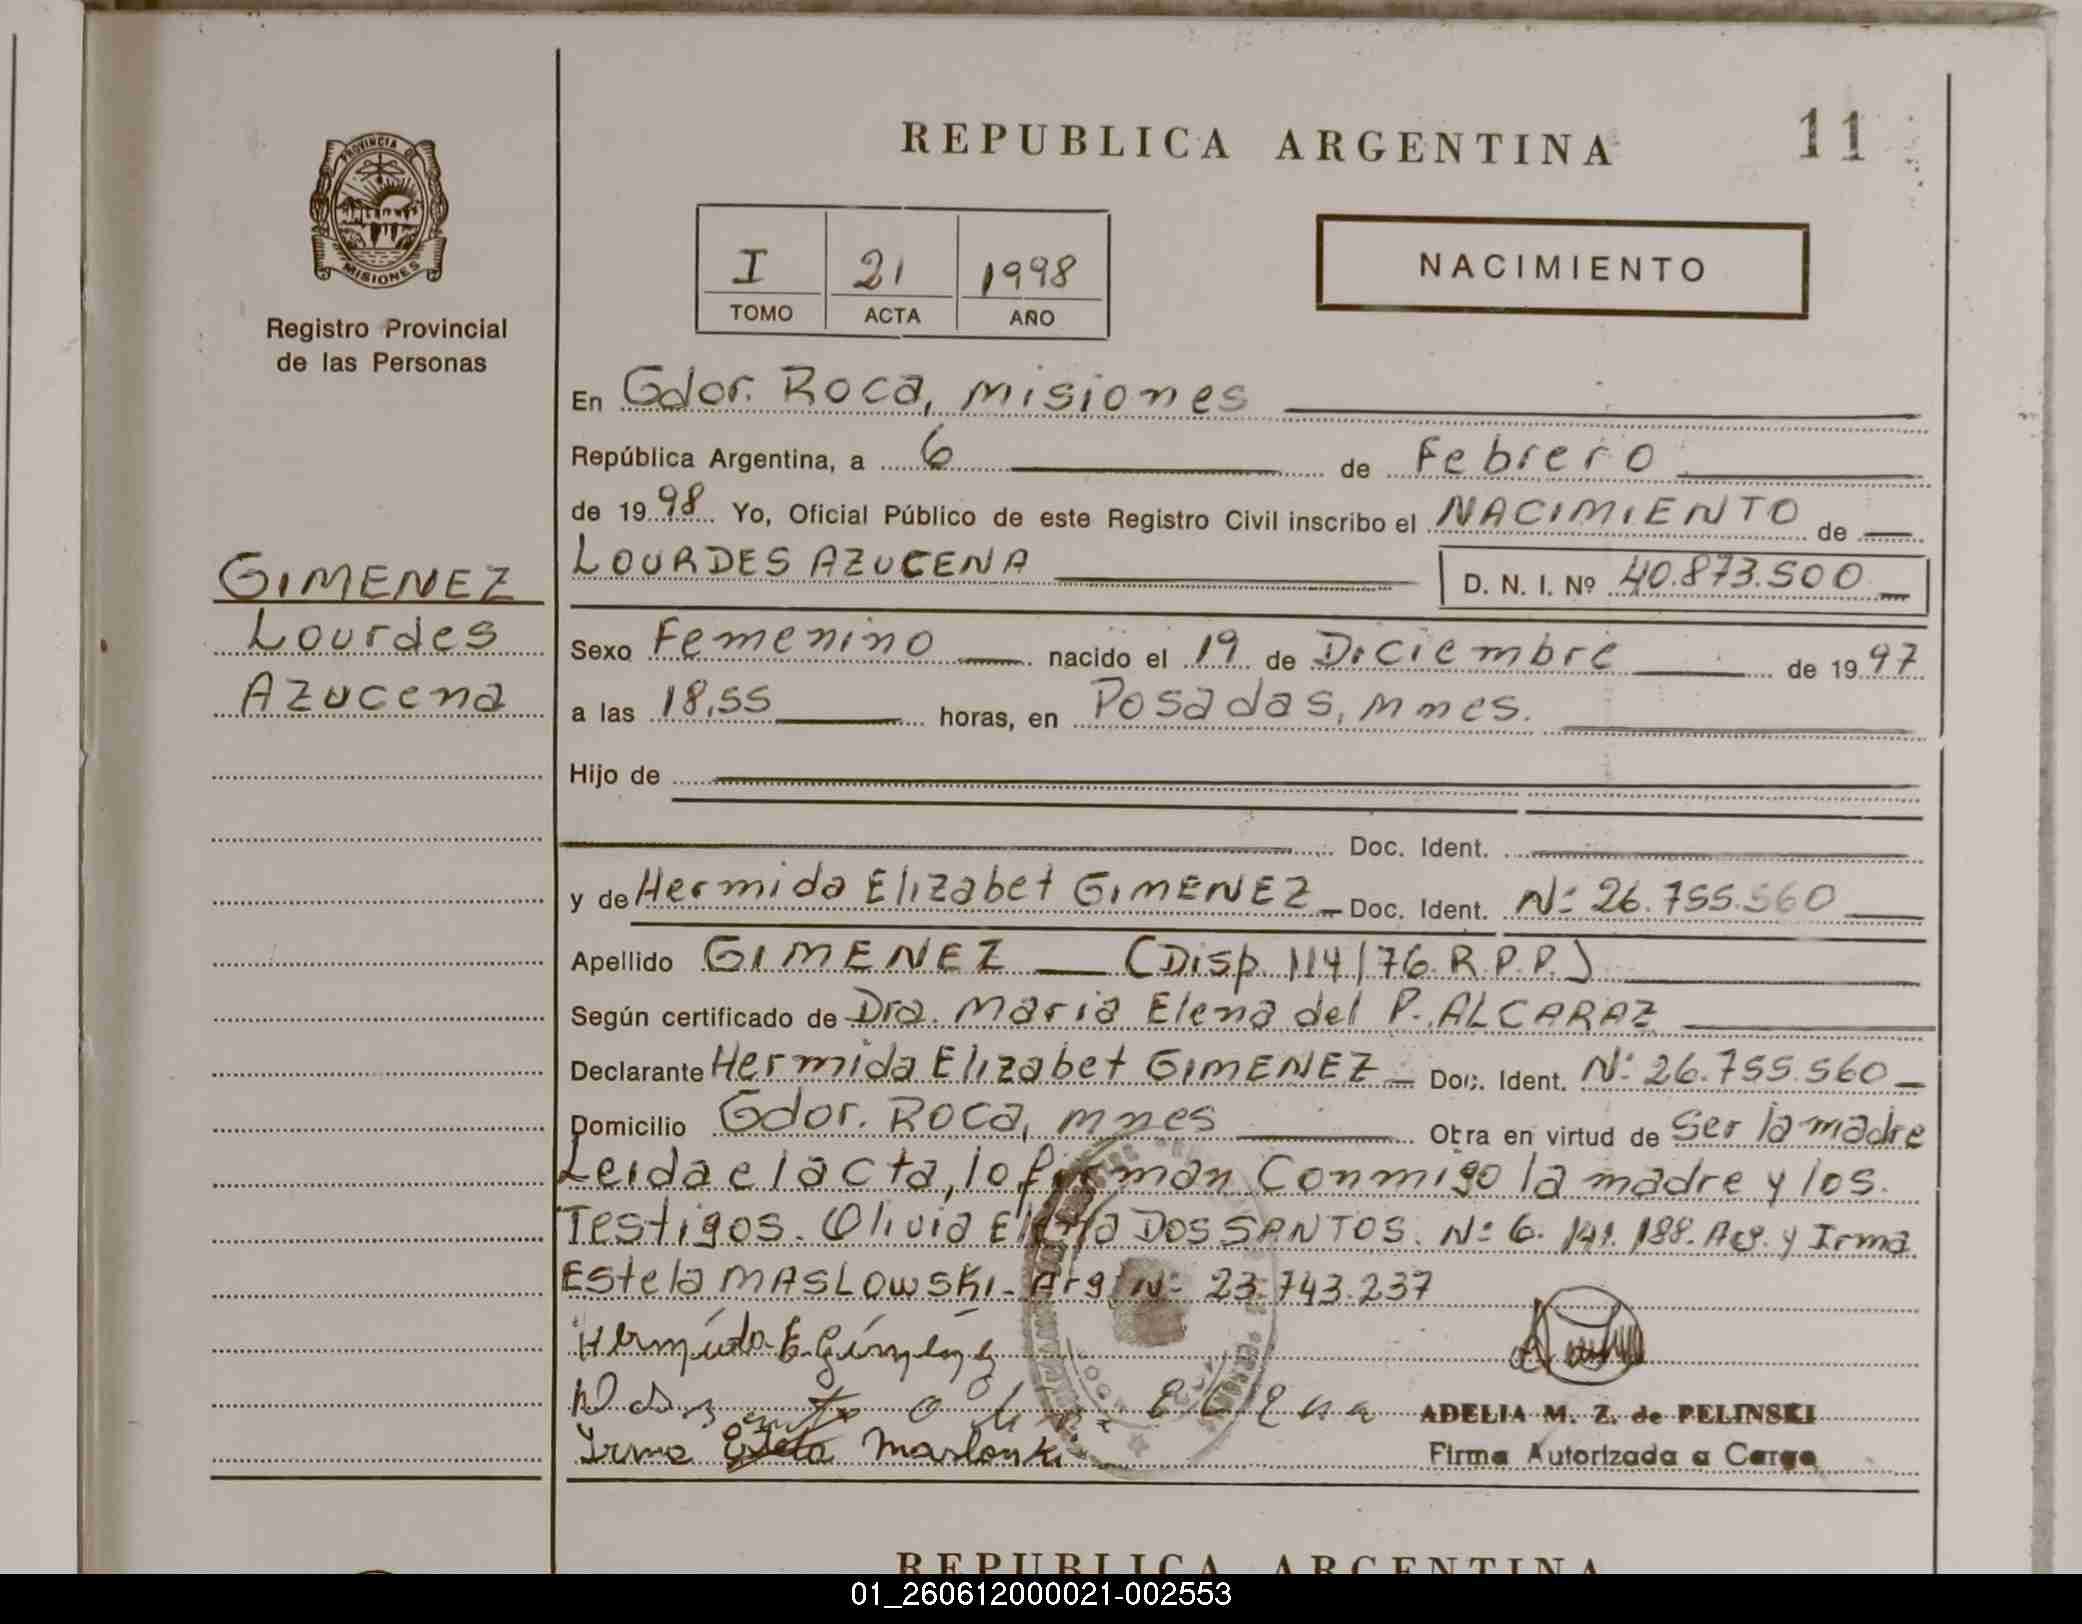 REPUBLICA ARGENTINA
11
PROVINCIA DE
MISIONES
Registro Provincial
de las Personas
I 21 1998
TOMO ACTA AÑO
NACIMIENTO
En Gdor. Roca, misiones
República Argentina, a 6 de Febrero
de 1998 Yo, Oficial Público de este Registro Civil inscribo el NACIMIENTO de
LOURDES AZUCENA D. N. I. Nº 40.873.500
GIMENEZ
Lourdes
Azucena
Sexo Femenino nacido el 19 de Diciembre de 1997
a las 18,55 horas, en Posadas, mnes.
Hijo de
Doc. Ident.
y de Hermida Elizabet GIMENEZ Doc. Ident. Nº 26.755.560
Apellido GIMENEZ (Disp. 114/76.R.P.P.)
Según certificado de Dra. Maria Elena del P. ALCARAZ
Declarante Hermida Elizabet GIMENEZ Doc. Ident. Nº 26.755.560
Domicilio Gdor. Roca, mnes Obra en virtud de Ser la madre
Leida el acta, lo firman Conmigo la madre y los
Testigos. Olivia Elena DOS SANTOS. Nº 6.141.188. Arg. y Irma
Estela MASLOWSKI - Arg Nº 23.743.237
Hermida E. Gimenez
Irma Estela Maslowski
ADELIA M. Z. de PELINSKI
Firma Autorizada a Cargo
REPUBLICA ARGENTINA
01_260612000021-002553